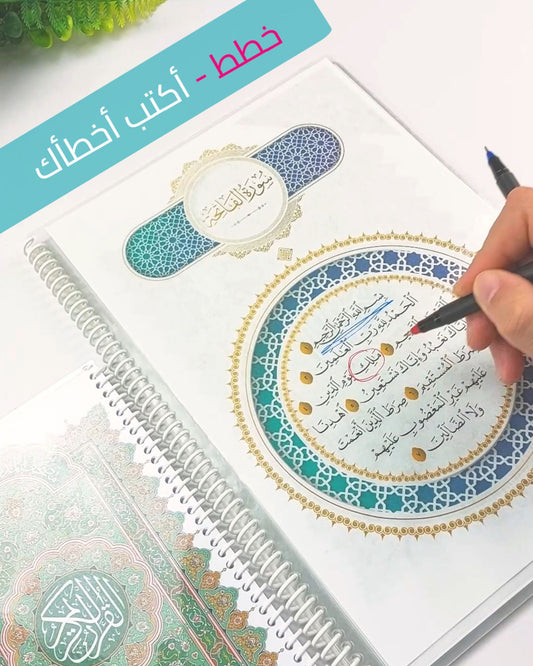 خطط - أكتب أخطأك
سُورَةُ الْفَاتِحَةِ
بِسْمِ اللَّهِ الرَّحْمَٰنِ الرَّحِيمِ
الْحَمْدُ لِلَّهِ رَبِّ الْعَٰلَمِينَ
مَٰلِكِ يَوْمِ الدِّينِ
إِيَّاكَ نَعْبُدُ وَإِيَّاكَ نَسْتَعِينُ ٥ اهْدِنَا
الصِّرَٰطَ الْمُسْتَقِيمَ ٦ صِرَٰطَ الَّذِينَ أَنْعَمْتَ
عَلَيْهِمْ غَيْرِ الْمَغْضُوبِ عَلَيْهِمْ
وَلَا الضَّالِّينَ ٧
القرآن الكريم